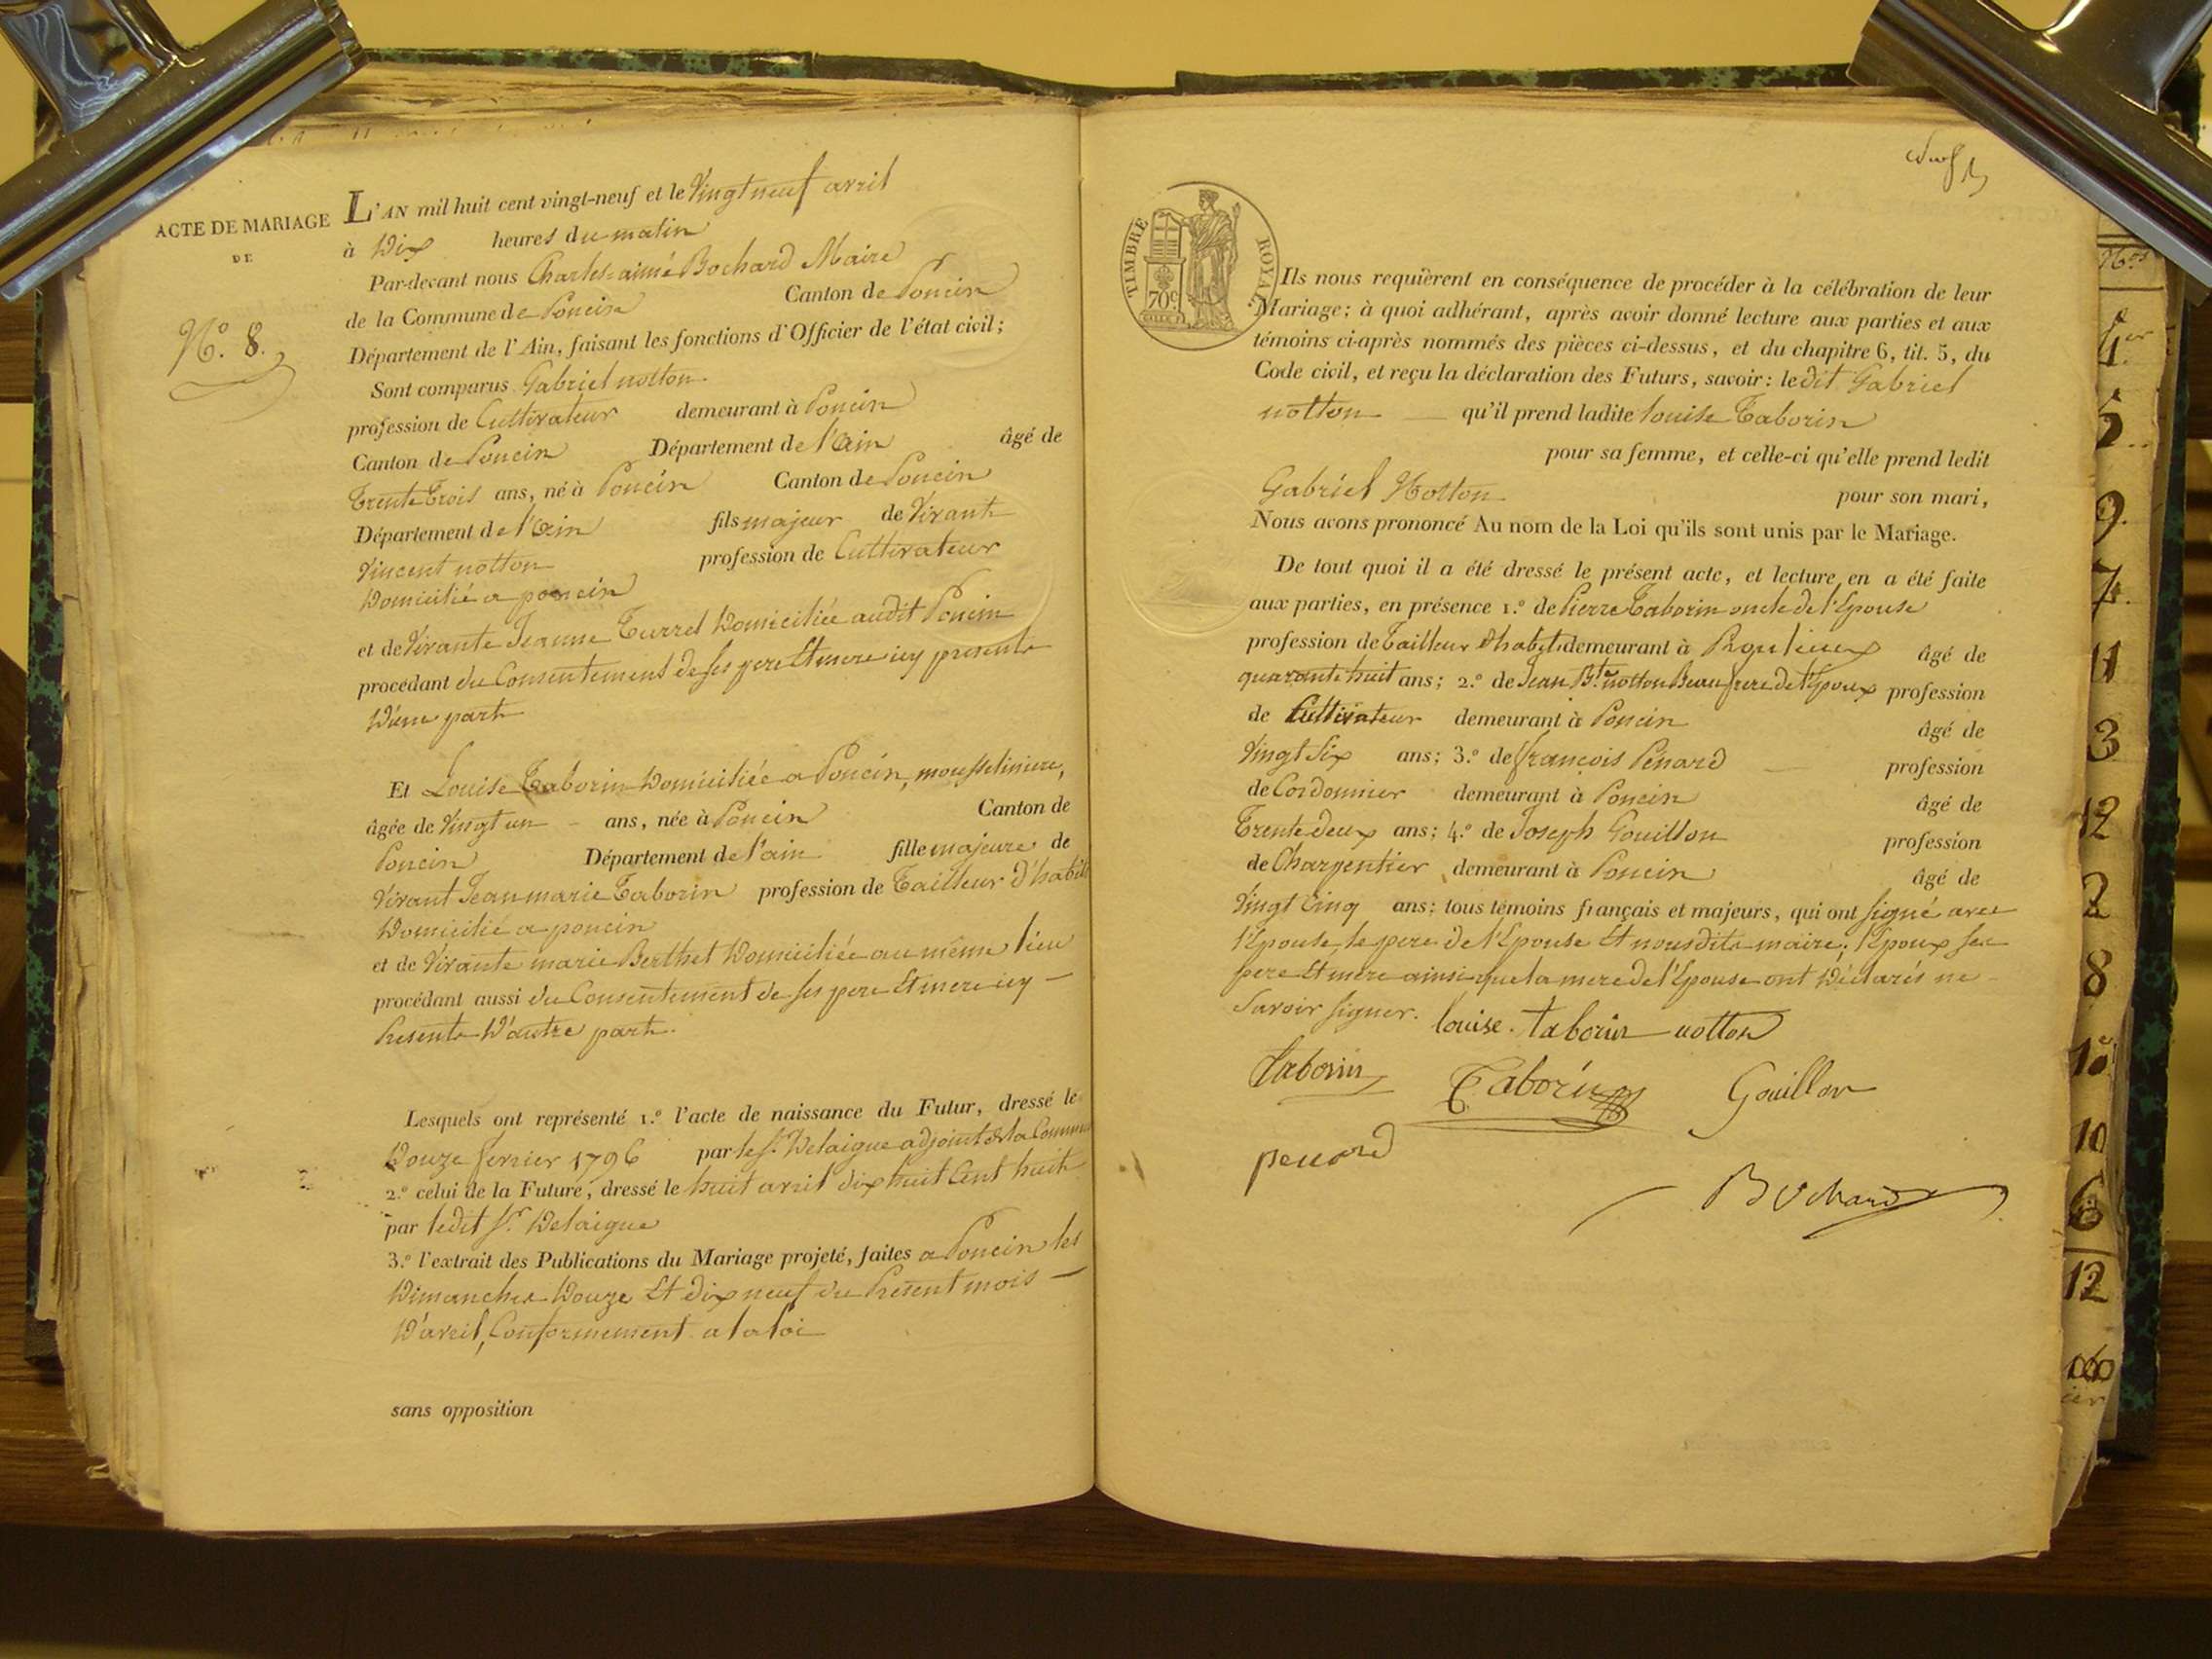 ACTE DE MARIAGE
DE
N.º 8.
L'AN mil huit cent vingt-neuf et le Vingt neuf avril
à Dix heures du matin
Par-devant nous Charles aimé Bochard Maire
de la Commune de Poncin Canton de Poncin
Département de l'Ain, faisant les fonctions d'Officier de l'état civil;
Sont comparus Gabriel notton
profession de Cultivateur demeurant à Poncin
Canton de Poncin Département de l'Ain âgé de
Trente Trois ans, né à Poncin Canton de Poncin
Département de l'Ain fils majeur de Vivant
Vincent notton profession de Cultivateur
Domicilié a poncin
et de Vivante Jeanne Turrel Domiciliée audit Poncin
procédant du Consentement de ses pere Et mere icy presents
D'une part
Et Louise Taborin Domiciliée a Poncin, mousseliniere,
âgée de Vingt un ans, née à Poncin Canton de
Poncin Département de l'ain fille majeure de
Vivant Jean marie Taborin profession de Tailleur d'habit
Domicilié a poncin
et de Vivante marie Berthet Domiciliée au même lieu
procédant aussi du Consentement de ses pere Et mere icy
Presents D'autre part.
Lesquels ont représenté 1.º l'acte de naissance du Futur, dressé le
Douze fevrier 1796 par le Sr. Delaigue adjoint de la Commune
2.º celui de la Future, dressé le huit avril dix huit Cent huit
par ledit Sr. Delaigue
3.º l'extrait des Publications du Mariage projeté, faites a Poncin les
Dimanches Douze Et dix neuf du Présent mois
D'avril, Conformement a la loi
sans opposition
TIMBRE ROYAL
70c
Ils nous requièrent en conséquence de procéder à la célébration de leur
Mariage; à quoi adhérant, après avoir donné lecture aux parties et aux
témoins ci-après nommés des pièces ci-dessus, et du chapitre 6, tit. 5, du
Code civil, et reçu la déclaration des Futurs, savoir: ledit Gabriel
notton qu'il prend ladite louise Taborin
pour sa femme, et celle-ci qu'elle prend ledit
Gabriel Notton pour son mari,
Nous avons prononcé Au nom de la Loi qu'ils sont unis par le Mariage.
De tout quoi il a été dressé le présent acte, et lecture en a été faite
aux parties, en présence 1.º de Pierre Taborin oncle de l'Epouse
profession de Tailleur D'habit demeurant à âgé de
quarante huit ans; 2.º de Jean Bte. notton Beau frere de l'Epoux profession
de Cultivateur demeurant à Poncin âgé de
Vingt Six ans; 3.º de françois Penard profession
de Cordonnier demeurant à Poncin âgé de
Trente deux ans; 4.º de Joseph Gouillon profession
de Charpentier demeurant à Poncin âgé de
Vingt Cinq ans; tous témoins français et majeurs, qui ont signé avec
l'Epouse, le pere de l'Epouse Et nous dits maire; l'Epoux ses
pere Et mere ainsi que la mere de l'Epouse ont Déclarés ne
Savoir signer.
louise. taborin notton
taborin
Taborin
Gouillon
penard
Bochard
Nos
1er
5
9.
7.
11
3
12
2
8
10
6
12